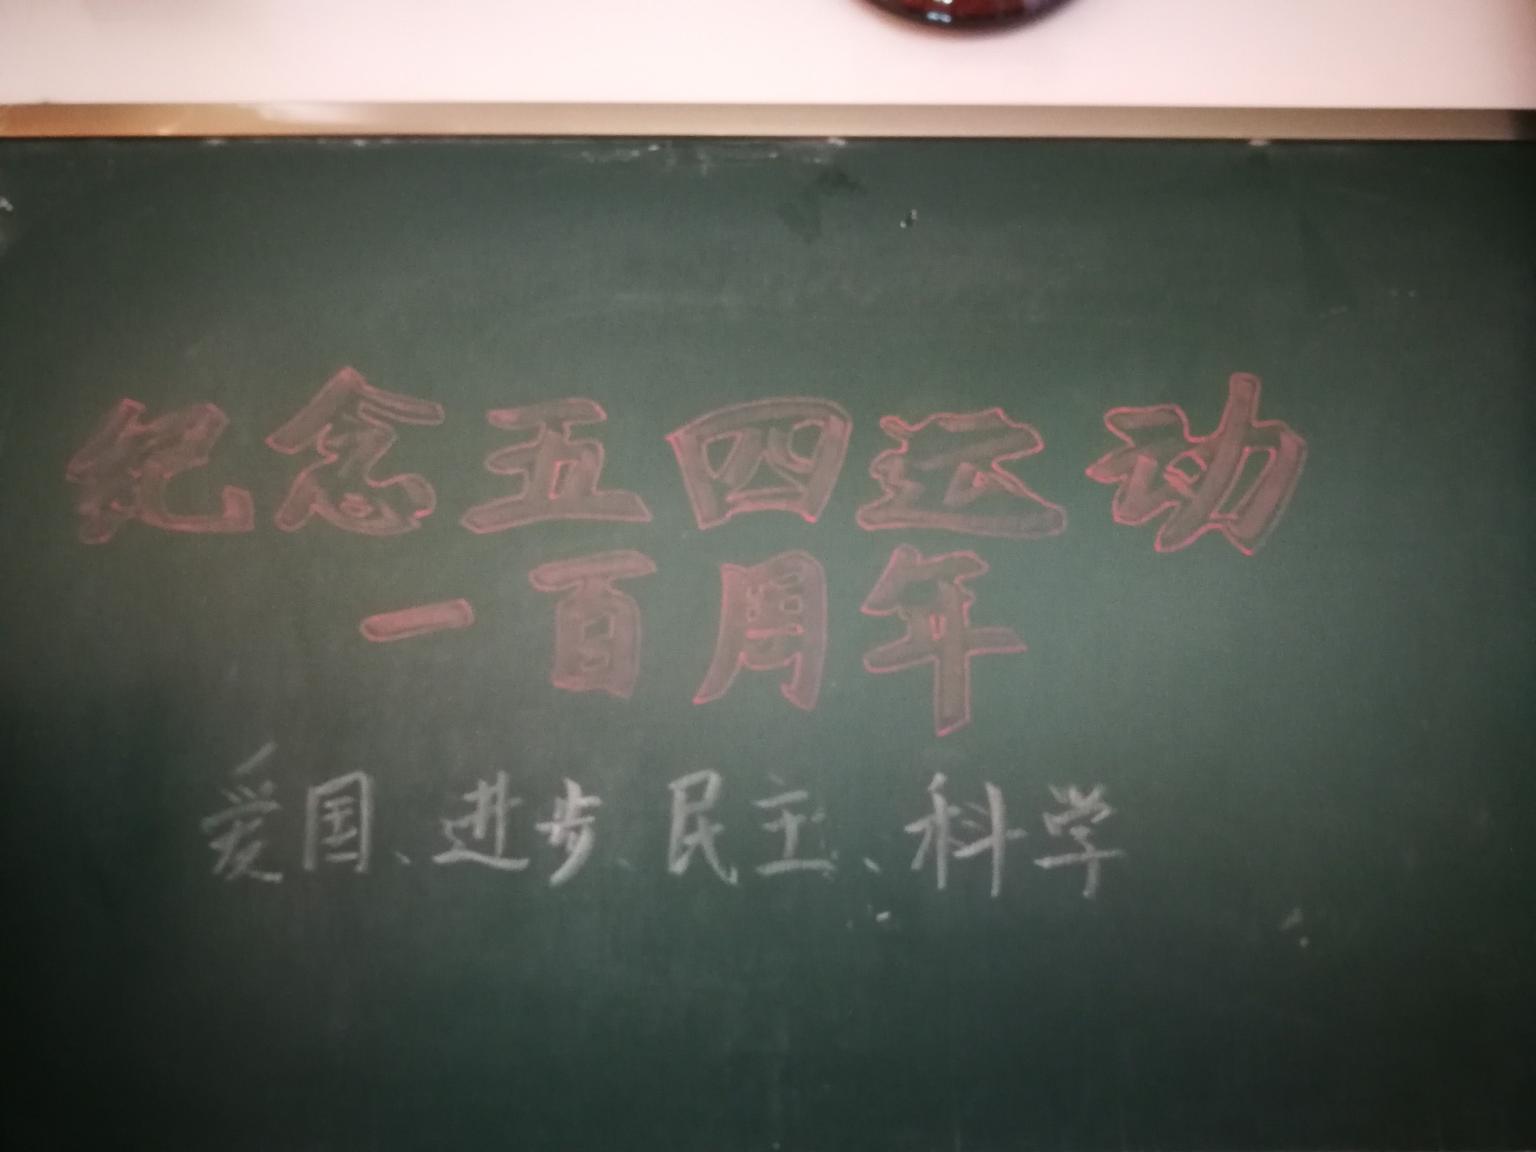 纪念五四运动
一百周年
爱国、进步、民主、科学